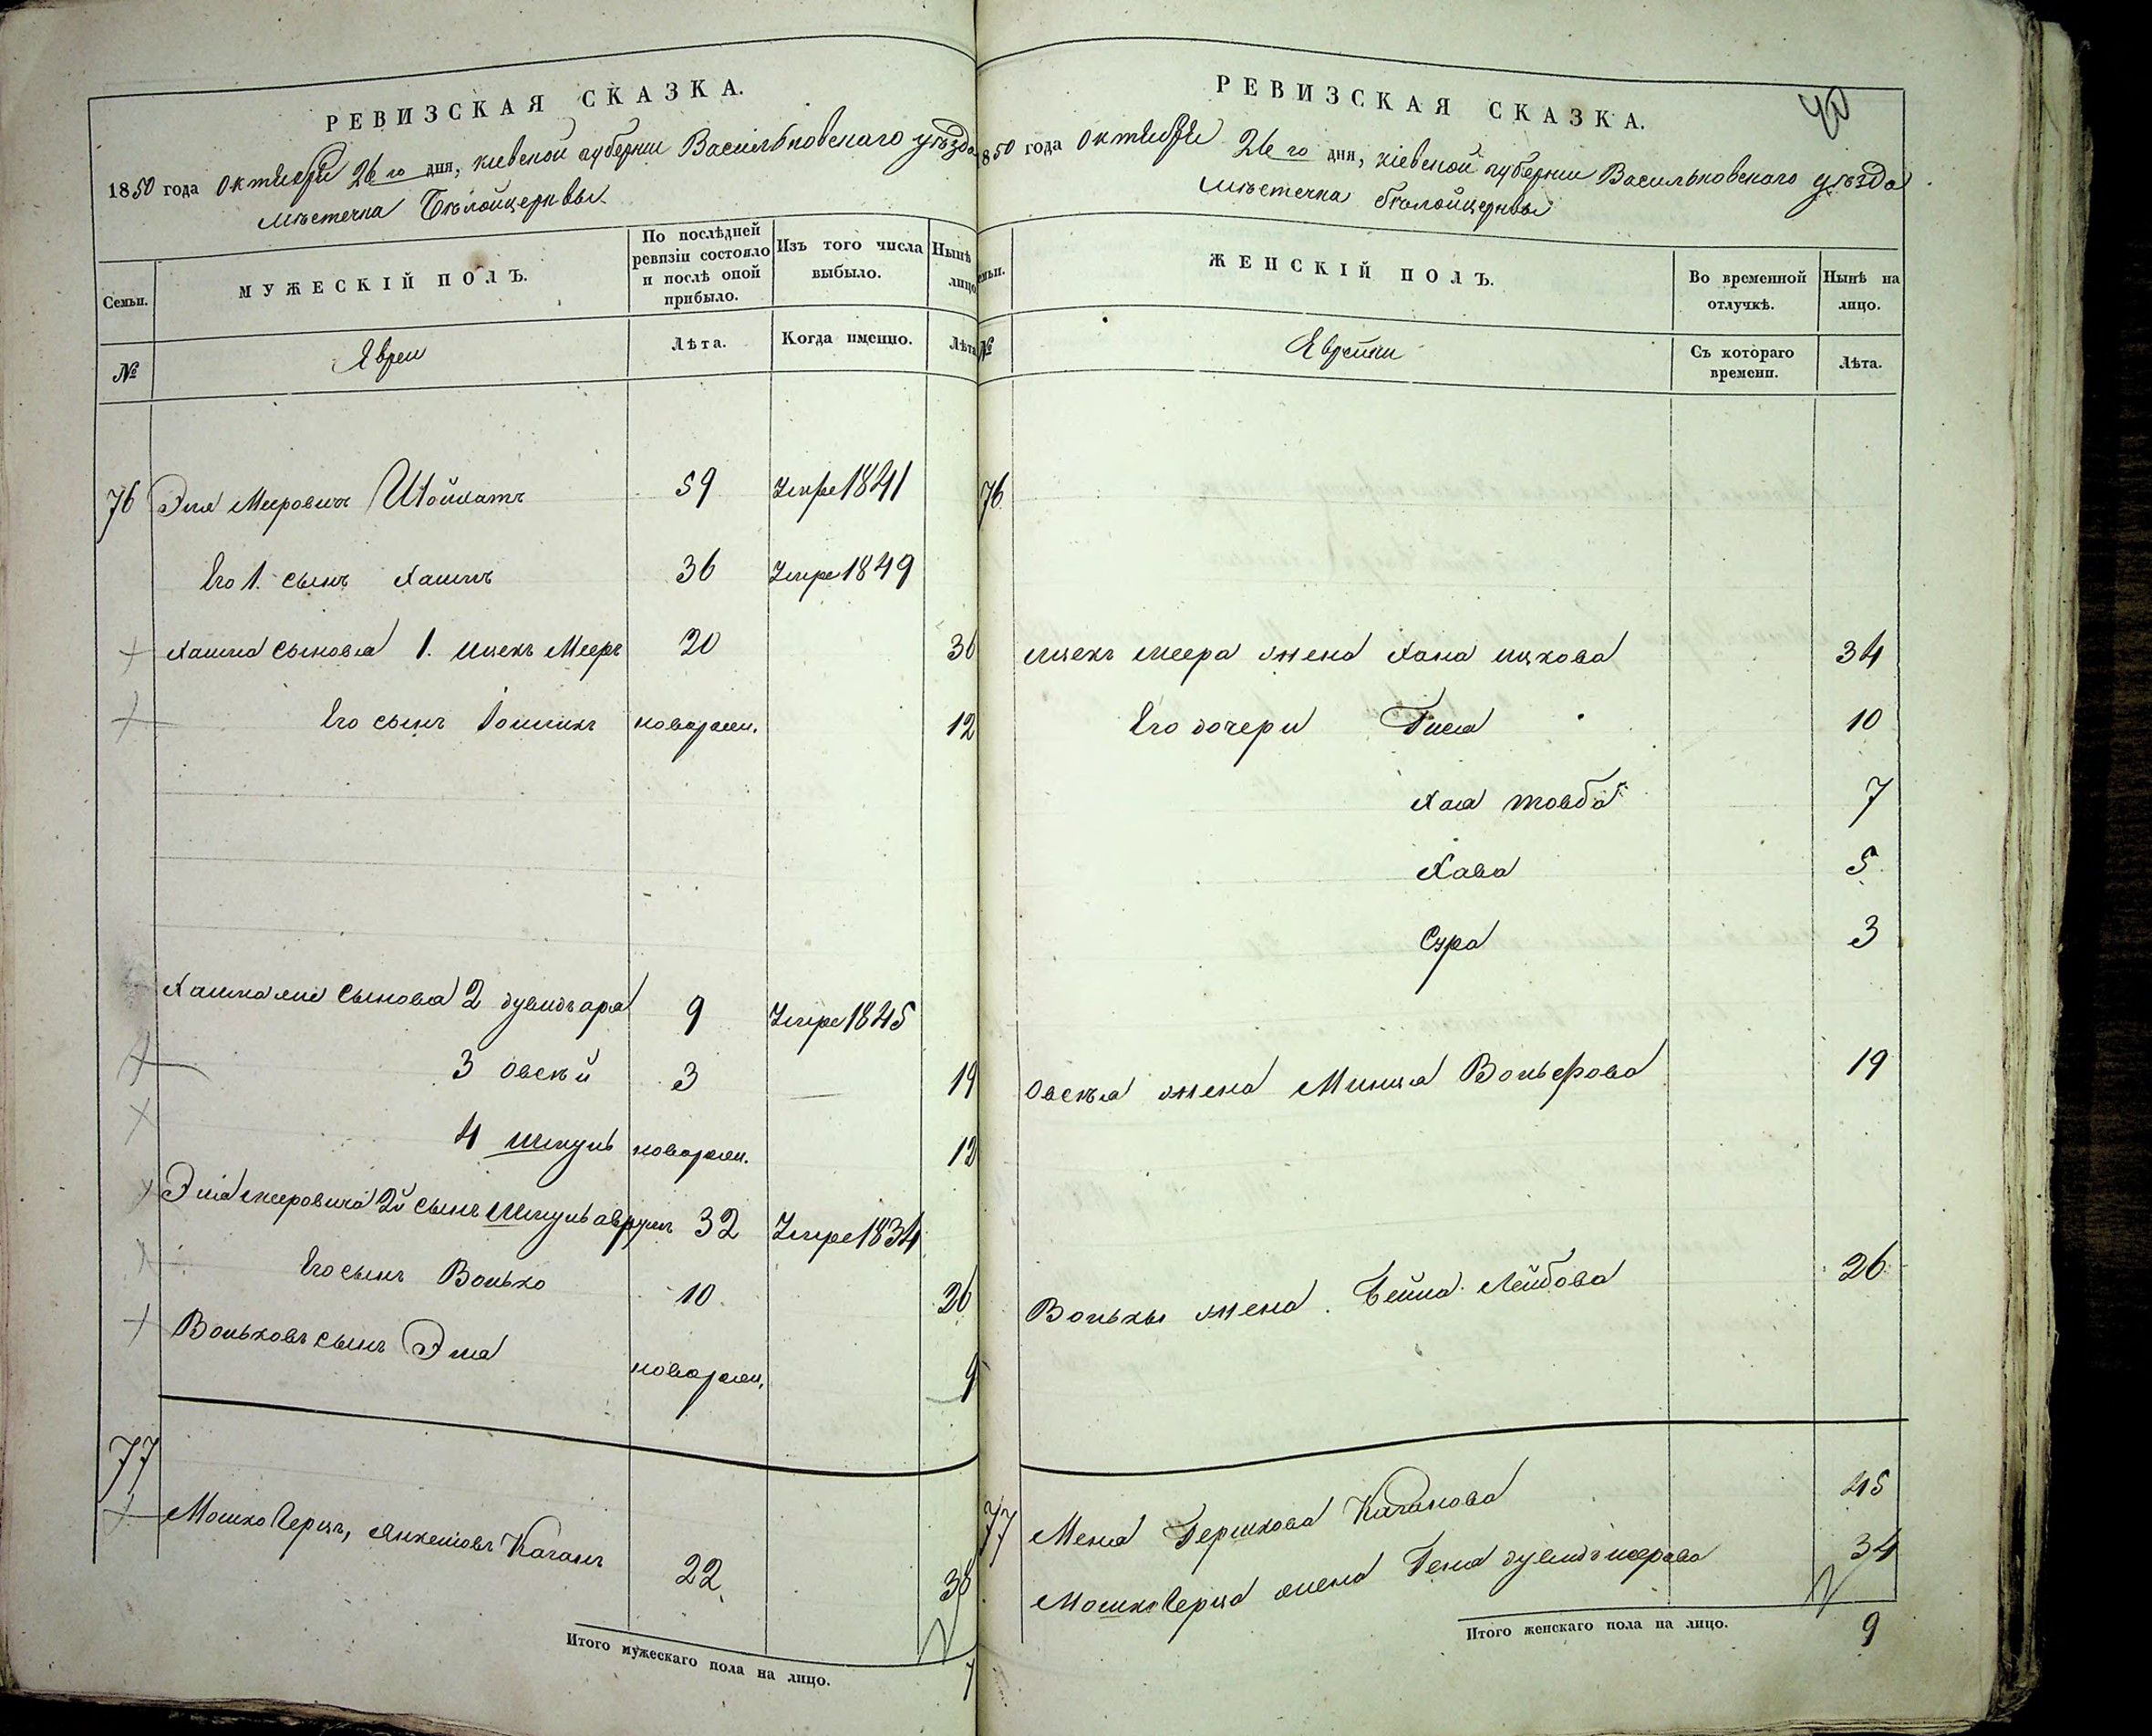 РЕВИЗСКАЯ СКАЗКА.
1850 года октября 26 го дня, киевской губернии Васильковского уѣзда
мѣстечка Бѣлойцерквы
Семьи.
МУЖЕСКІЙ ПОЛЪ.
По послѣдней ревизіи состояло и послѣ оной прибыло.
Изъ того числа выбыло.
Нынѣ лицо
№
Евреи
Лѣта.
Когда именно.
Лѣта
76 Эля Меерович 59 Умре 1841
Его 1. сынъ Хаимъ 36 Умре 1849
Хаима сыновья 1. Ицекъ Мееръ 20 36
Его сынъ новорож. 12
Хаима сыновья 2 9 Умре 1845
3 Овсѣй 3 19
4 Шмуль новорож. 12
Эля Мееровича 2й сынъ Шмуль аврумъ 32 Умре 1834
Его сынъ Волько 10 26
Вольковъ сынъ Эля новорож. 9
77
Мошко Герцъ, Янкелювъ Каганъ 22 38
Итого мужескаго пола на лицо. 7
РЕВИЗСКАЯ СКАЗКА.
40
850 года октября 26 го дня, кіевской губернии Васильковского уѣзда
мѣстечка бѣлойцерквы
емьи.
ЖЕНСКІЙ ПОЛЪ.
Во временной отлучкѣ.
Нынѣ на лицо.
№
Еврейки
Съ котораго времени.
Лѣта.
76
Ицекъ Меера жена Хана ицкова 34
Его дочери 10
Хая товба 7
Хава 5
Сура 3
Овсѣя жена Минця Вольфова 19
Волькы жена Бейла Лейбова 26
77 Меня Гершкова Каганова 45
Мошко Герца жена Геня 34
Итого женскаго пола на лицо. 9